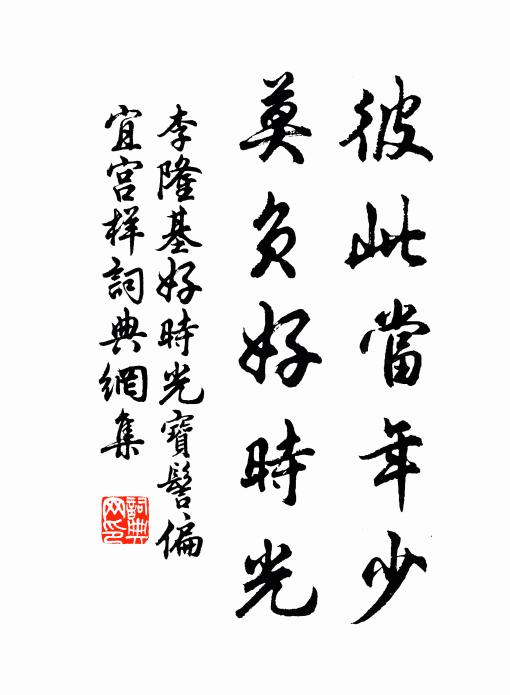 彼此當年少
莫負好時光
李隆基好時光寶髻偏
宜宮样詞典網集
詞典
网印